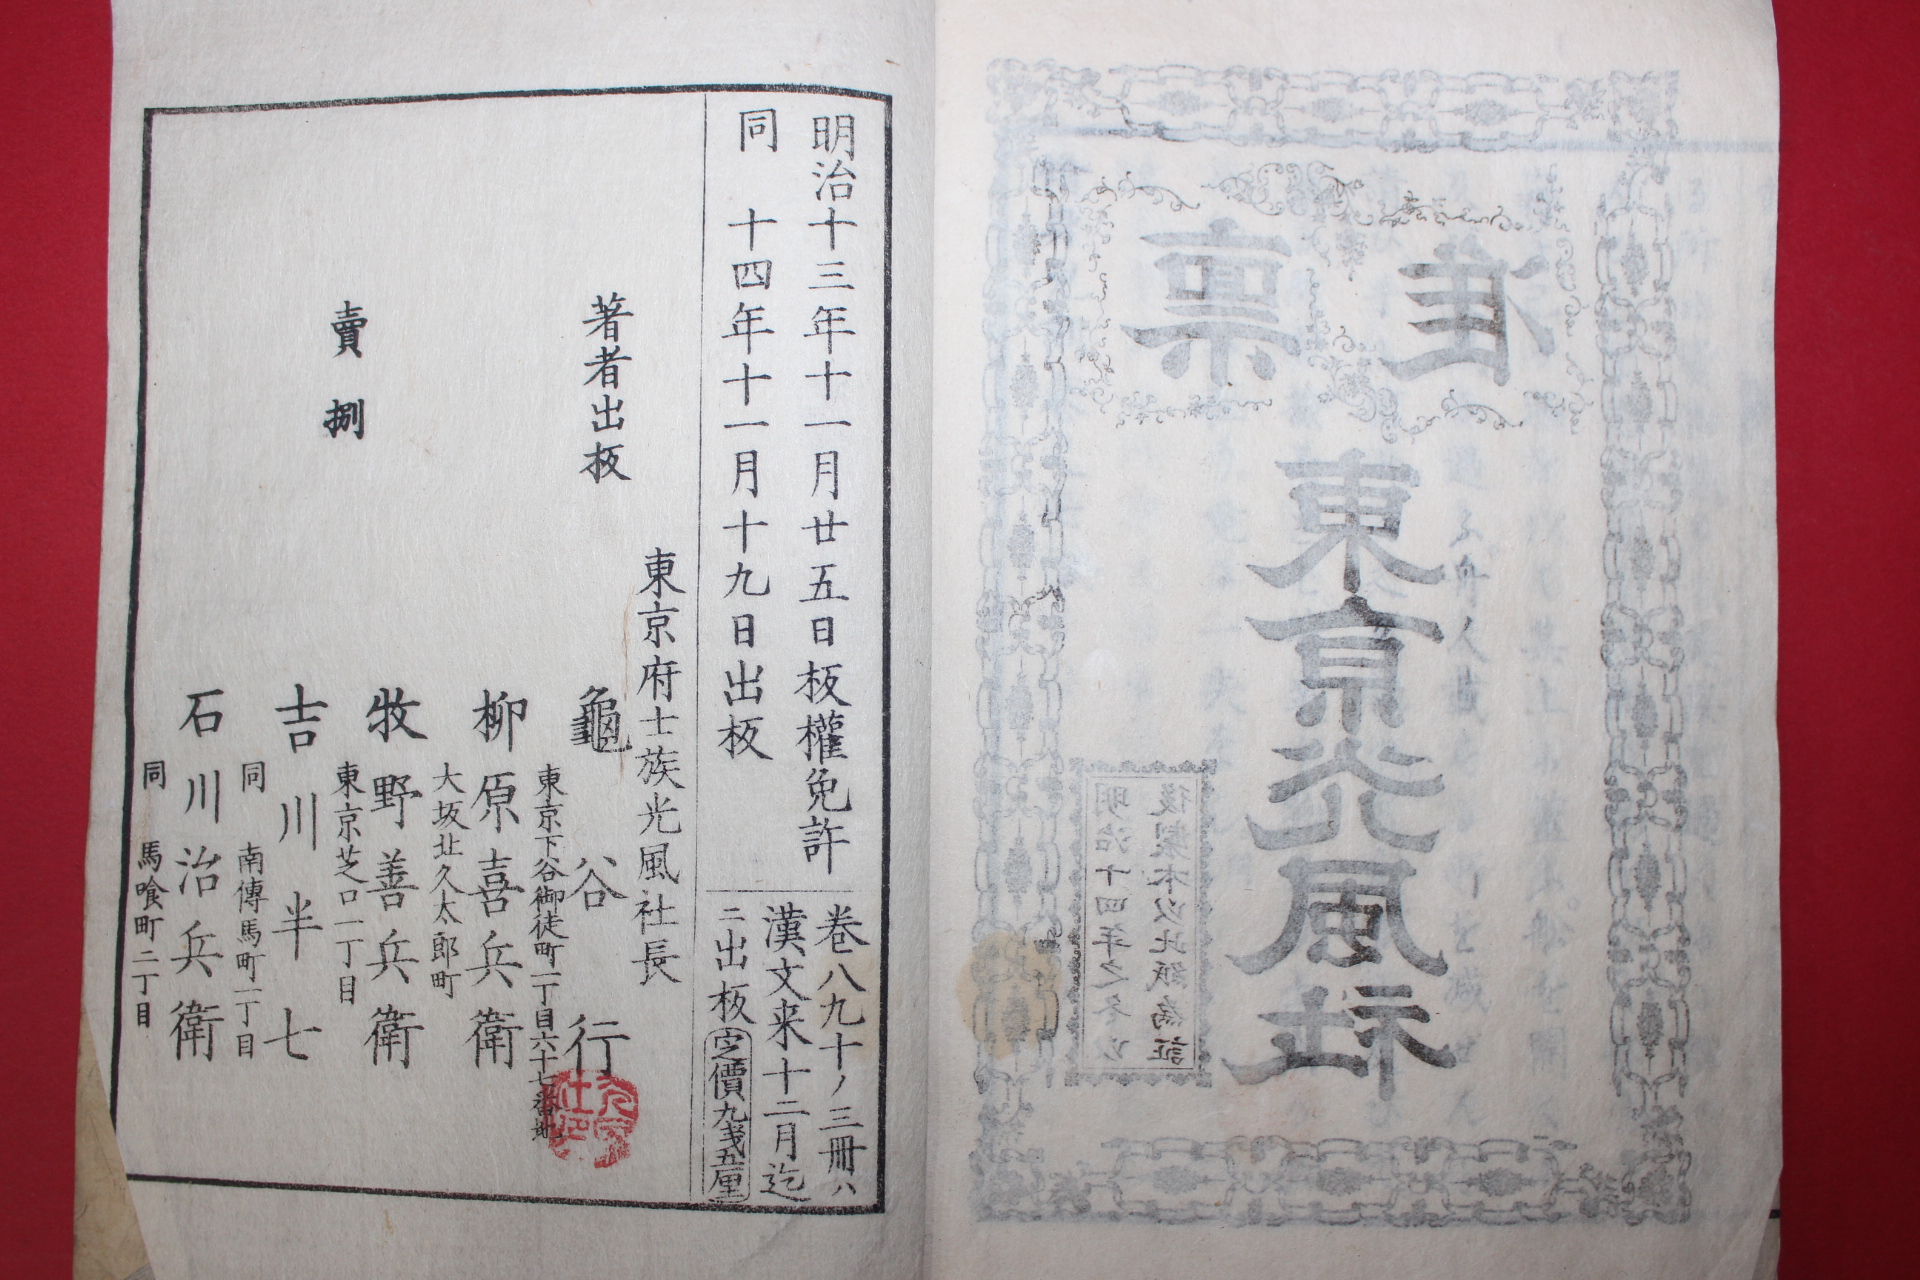 准
票
東京光風社
明治十四年之冬以
後製本以此紙為証
明治十三年十一月廿五日板權免許
同 十四年十一月十九日出板
卷八九十ノ三冊ハ
漢文来十二月迄
ニ出板
定價九戔五厘
著者出板
東京府士族光風社長
龜谷行
東京下谷御徒町一丁目六十七番地
賣捌
柳原喜兵衛
大坂北久太郎町
牧野善兵衛
東京芝口一丁目
吉川半七
同 南傳馬町一丁目
石川治兵衛
同 馬喰町二丁目